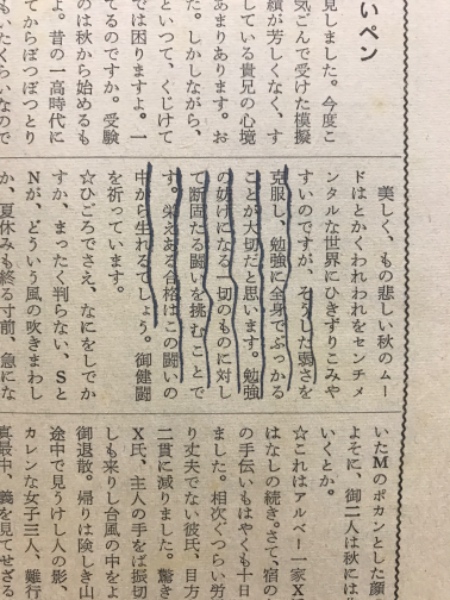 いペン
見しました。今度こ
気ごんで受けた模擬
績が芳しくなく、す
している貴兄の心境
あまりあります。お
た。しかしながら、
といつて、くじけて
では困りますよ。一
てるのですか。受験
のは秋から始めるも
よ。昔の一高時代に
てからぼつぼつとり
もいたくらいなので
美しく、もの悲しい秋のムー
ドはとかくわれわれをセンチメ
ンタルな世界にひきずりこみや
すいのですが、そうした弱さを
克服し、勉強に全身でぶっかる
ことが大切だと思います。勉強
の妨げになる一切のものに対し
て断固たる闘いを挑むことで
す。栄えある合格はこの闘いの
中から生れるでしょう。御健闘
を祈っています。
☆ひごろでさえ、なにをしでか
すか、まったく判らない、Sと
Nが、どういう風の吹きまわし
か、夏休みも終る寸前、急にな
いたMのポカンとした顔
よそに、御二人は秋には
いくとか。
☆これはアルベー一家X
はなしの続き。さて、宿の
の手伝いもはやくも十日
ました。相次ぐつらい労
り丈夫でない彼氏、目方
二貫に減りました。驚き
X氏、主人の手をば振切
しも来りし台風の中をよ
御退散。帰りは険しき山
途中で見うけし人の影、
カレンな女子三人、難行
真最中、義を見てせざる